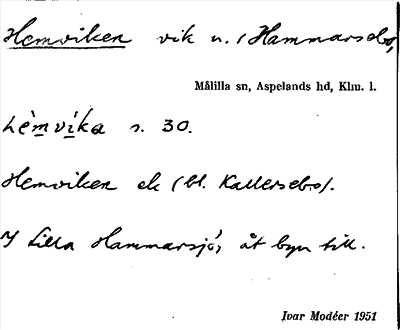 Hemviken vik n. (Hammarsebo,
Målilla sn, Aspelands hd, Klm. l.
s. 30.
Hemviken ek (bl. Kallersebo).
I Lilla Hammarsjö, åt byn till.
Ivar Modéer 1951